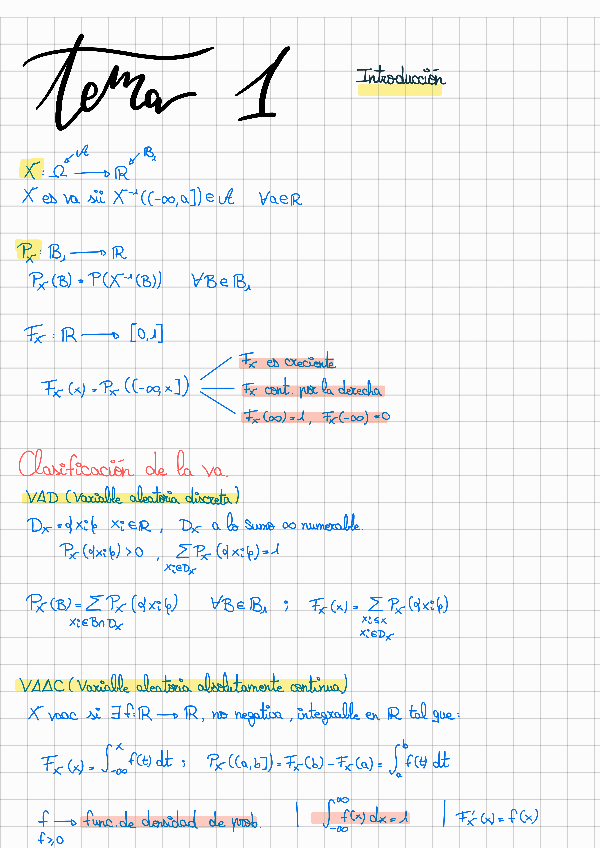 Tema 1
Introducción
𝒜 B₁
X : Ω ⟶ ℝ
X es va sii X⁻¹((-∞,a]) ∈ 𝒜 ∀a∈ℝ
Pₓ : B₁ ⟶ ℝ
Pₓ(B) = P(X⁻¹(B)) ∀B∈B₁
Fₓ : ℝ ⟶ [0,1]
Fₓ es creciente
Fₓ(x) = Pₓ((-∞,x]) Fₓ cont. por la derecha
Fₓ(∞)=1, Fₓ(-∞)=0
Clasificación de la va.
VAD (Variable aleatoria discreta)
Dₓ = {xᵢ} xᵢ∈ℝ, Dₓ a lo sumo ∞ numerable.
Pₓ({xᵢ}) > 0 , ∑ Pₓ({xᵢ}) = 1
xᵢ∈Dₓ
Pₓ(B) = ∑ Pₓ({xᵢ}) ∀B∈B₁ ; Fₓ(x) = ∑ Pₓ({xᵢ})
xᵢ∈B∩Dₓ xᵢ≤x
xᵢ∈Dₓ
VAAC (Variable aleatoria absolutamente continua)
X vaac si ∃f:ℝ ⟶ ℝ, no negativa, integrable en ℝ tal que:
Fₓ(x) = ∫_{-∞}^{x} f(t) dt ; Pₓ((a,b]) = Fₓ(b) - Fₓ(a) = ∫_{a}^{b} f(t) dt
f ⟶ func. de densidad de prob. | ∫_{-∞}^{∞} f(x) dx = 1 | F'ₓ(x) = f(x)
f≥0